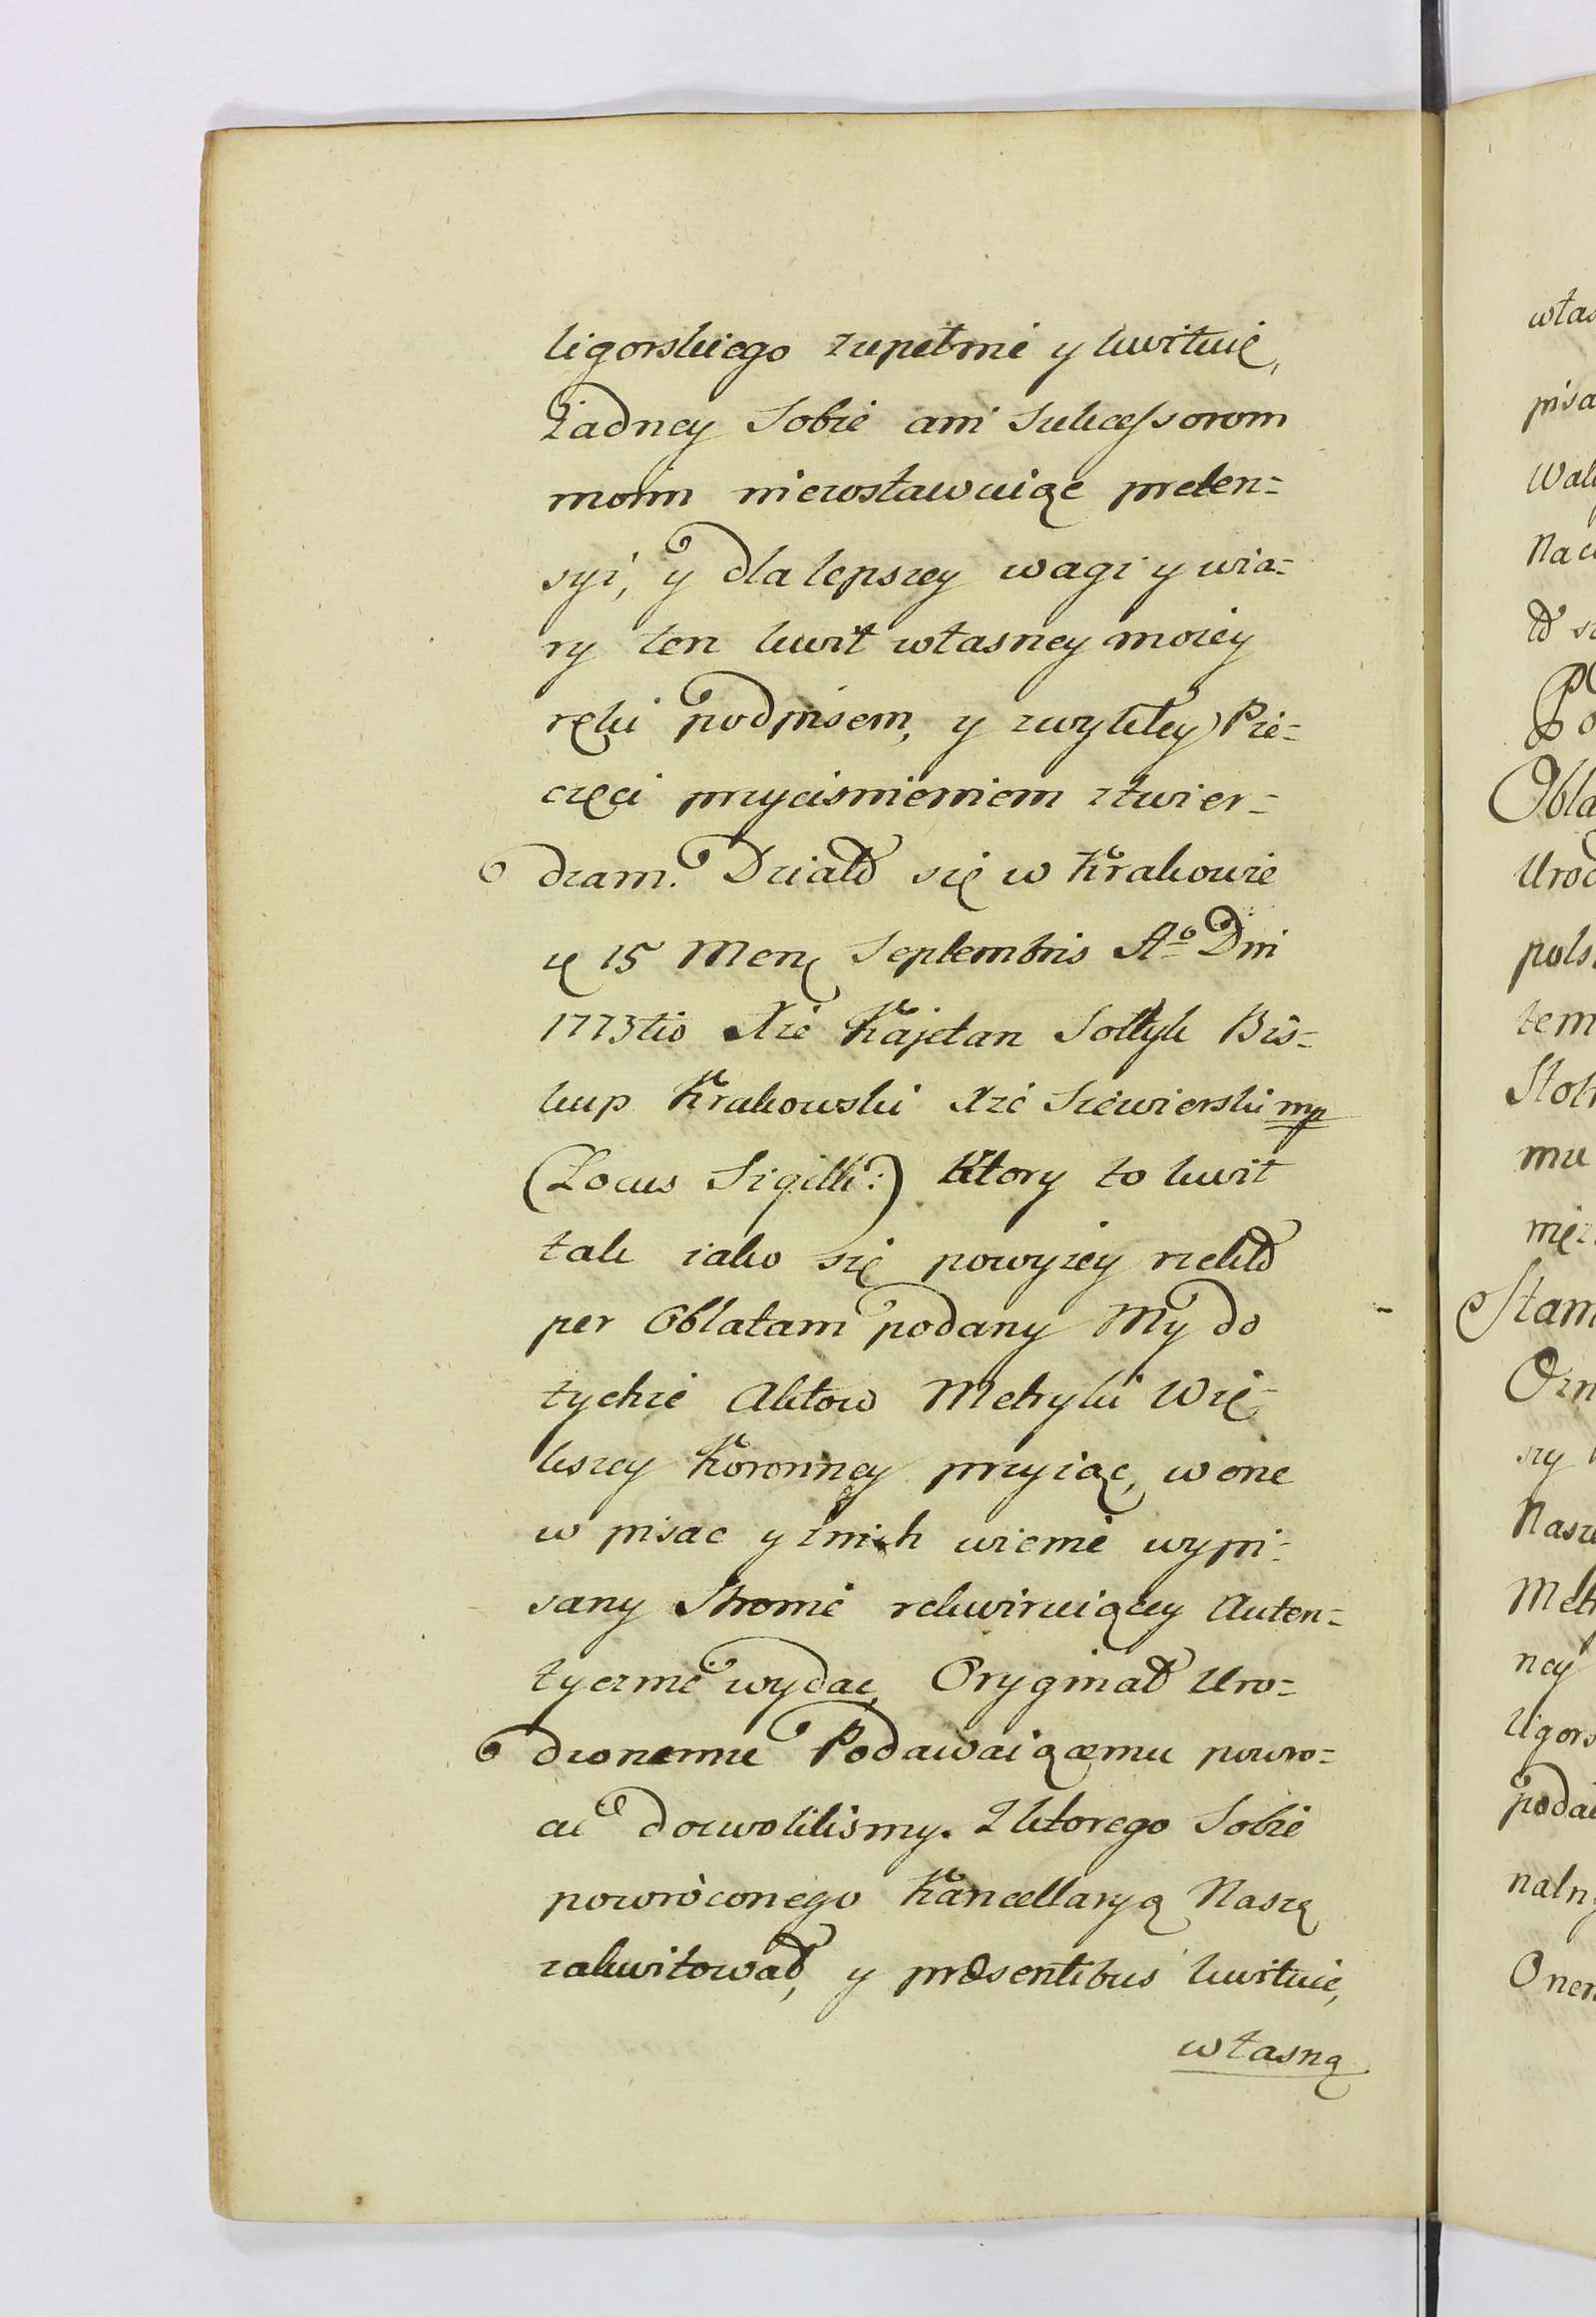 ligorskiego zupełnie y kwituię,
żadney Sobie ani Sukcessorom
moim niezostawuiąc preten=
syi, y dla lepszey wagi y wia=
ry ten kwit własney moiey
ręki podpisem, y zwykłey Pie=
częci przycisnieniem ztwier=
dzam. Działo się w Krakowie
d 15 Mens Septembris Ao Dni
1773tio Xże Kajetan Sołtyk Bis=
kup Krakowski Xże Siewierski mp
(Locus Sigilli:) Ktory to kwit
tak iako się powyżey rzekło
per Oblatam podany My do
tychże Aktow Metryki Wię=
kszey Koronney przyiąc, w one
w pisac y z nich wiernie wypi=
sany Stronie rekwiruiącey Auten=
tycznie wydac, Oryginał Uro=
dzonemu Podawaiącemu powro=
cic dozwolilismy. Z ktorego Sobie
powróconego Kancellaryą Naszą
zakwitował, y præsentibus kwituie,
własną
włas
pisa
Wal
Na
Obla
Urod
pols
tem
Stol
mu
Stam
Ozn
szy
Nasz
Met
ney
ligors
poda
naln
Onem